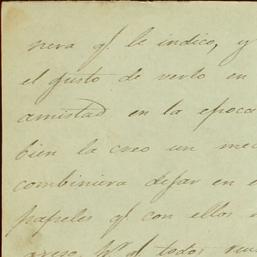 nera qᵉ le indico, y
el gusto de verlo en
amistad en la epoca
bien la creo un me
combiniera dejar en e
papeles qᵉ con ellos
preso pʳ qᵉ todos